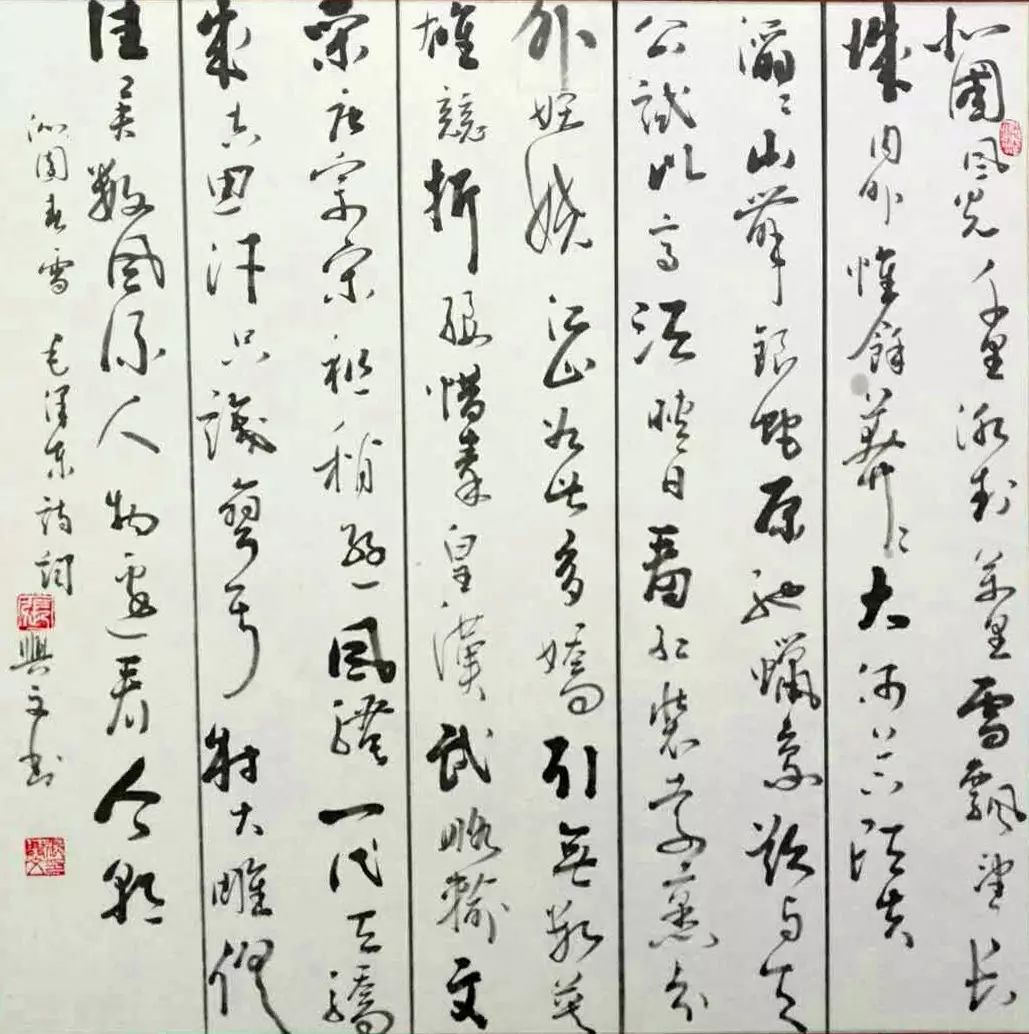 北國風光千里冰封萬里雪飄望長
城内外惟餘莽〻大河上下頓失
滔〻山舞銀蛇原馳蠟象欲与天
公試比高須晴日看红裝素裹分
外妖嬈江山如此多嬌引無數英
雄競折腰惜秦皇漢武略輸文
采唐宗宋祖稍遜風騷一代天驕
成吉思汗只識彎弓射大雕俱
往矣數風流人物還看今朝
沁園春雪 毛澤東詩詞 張興文书